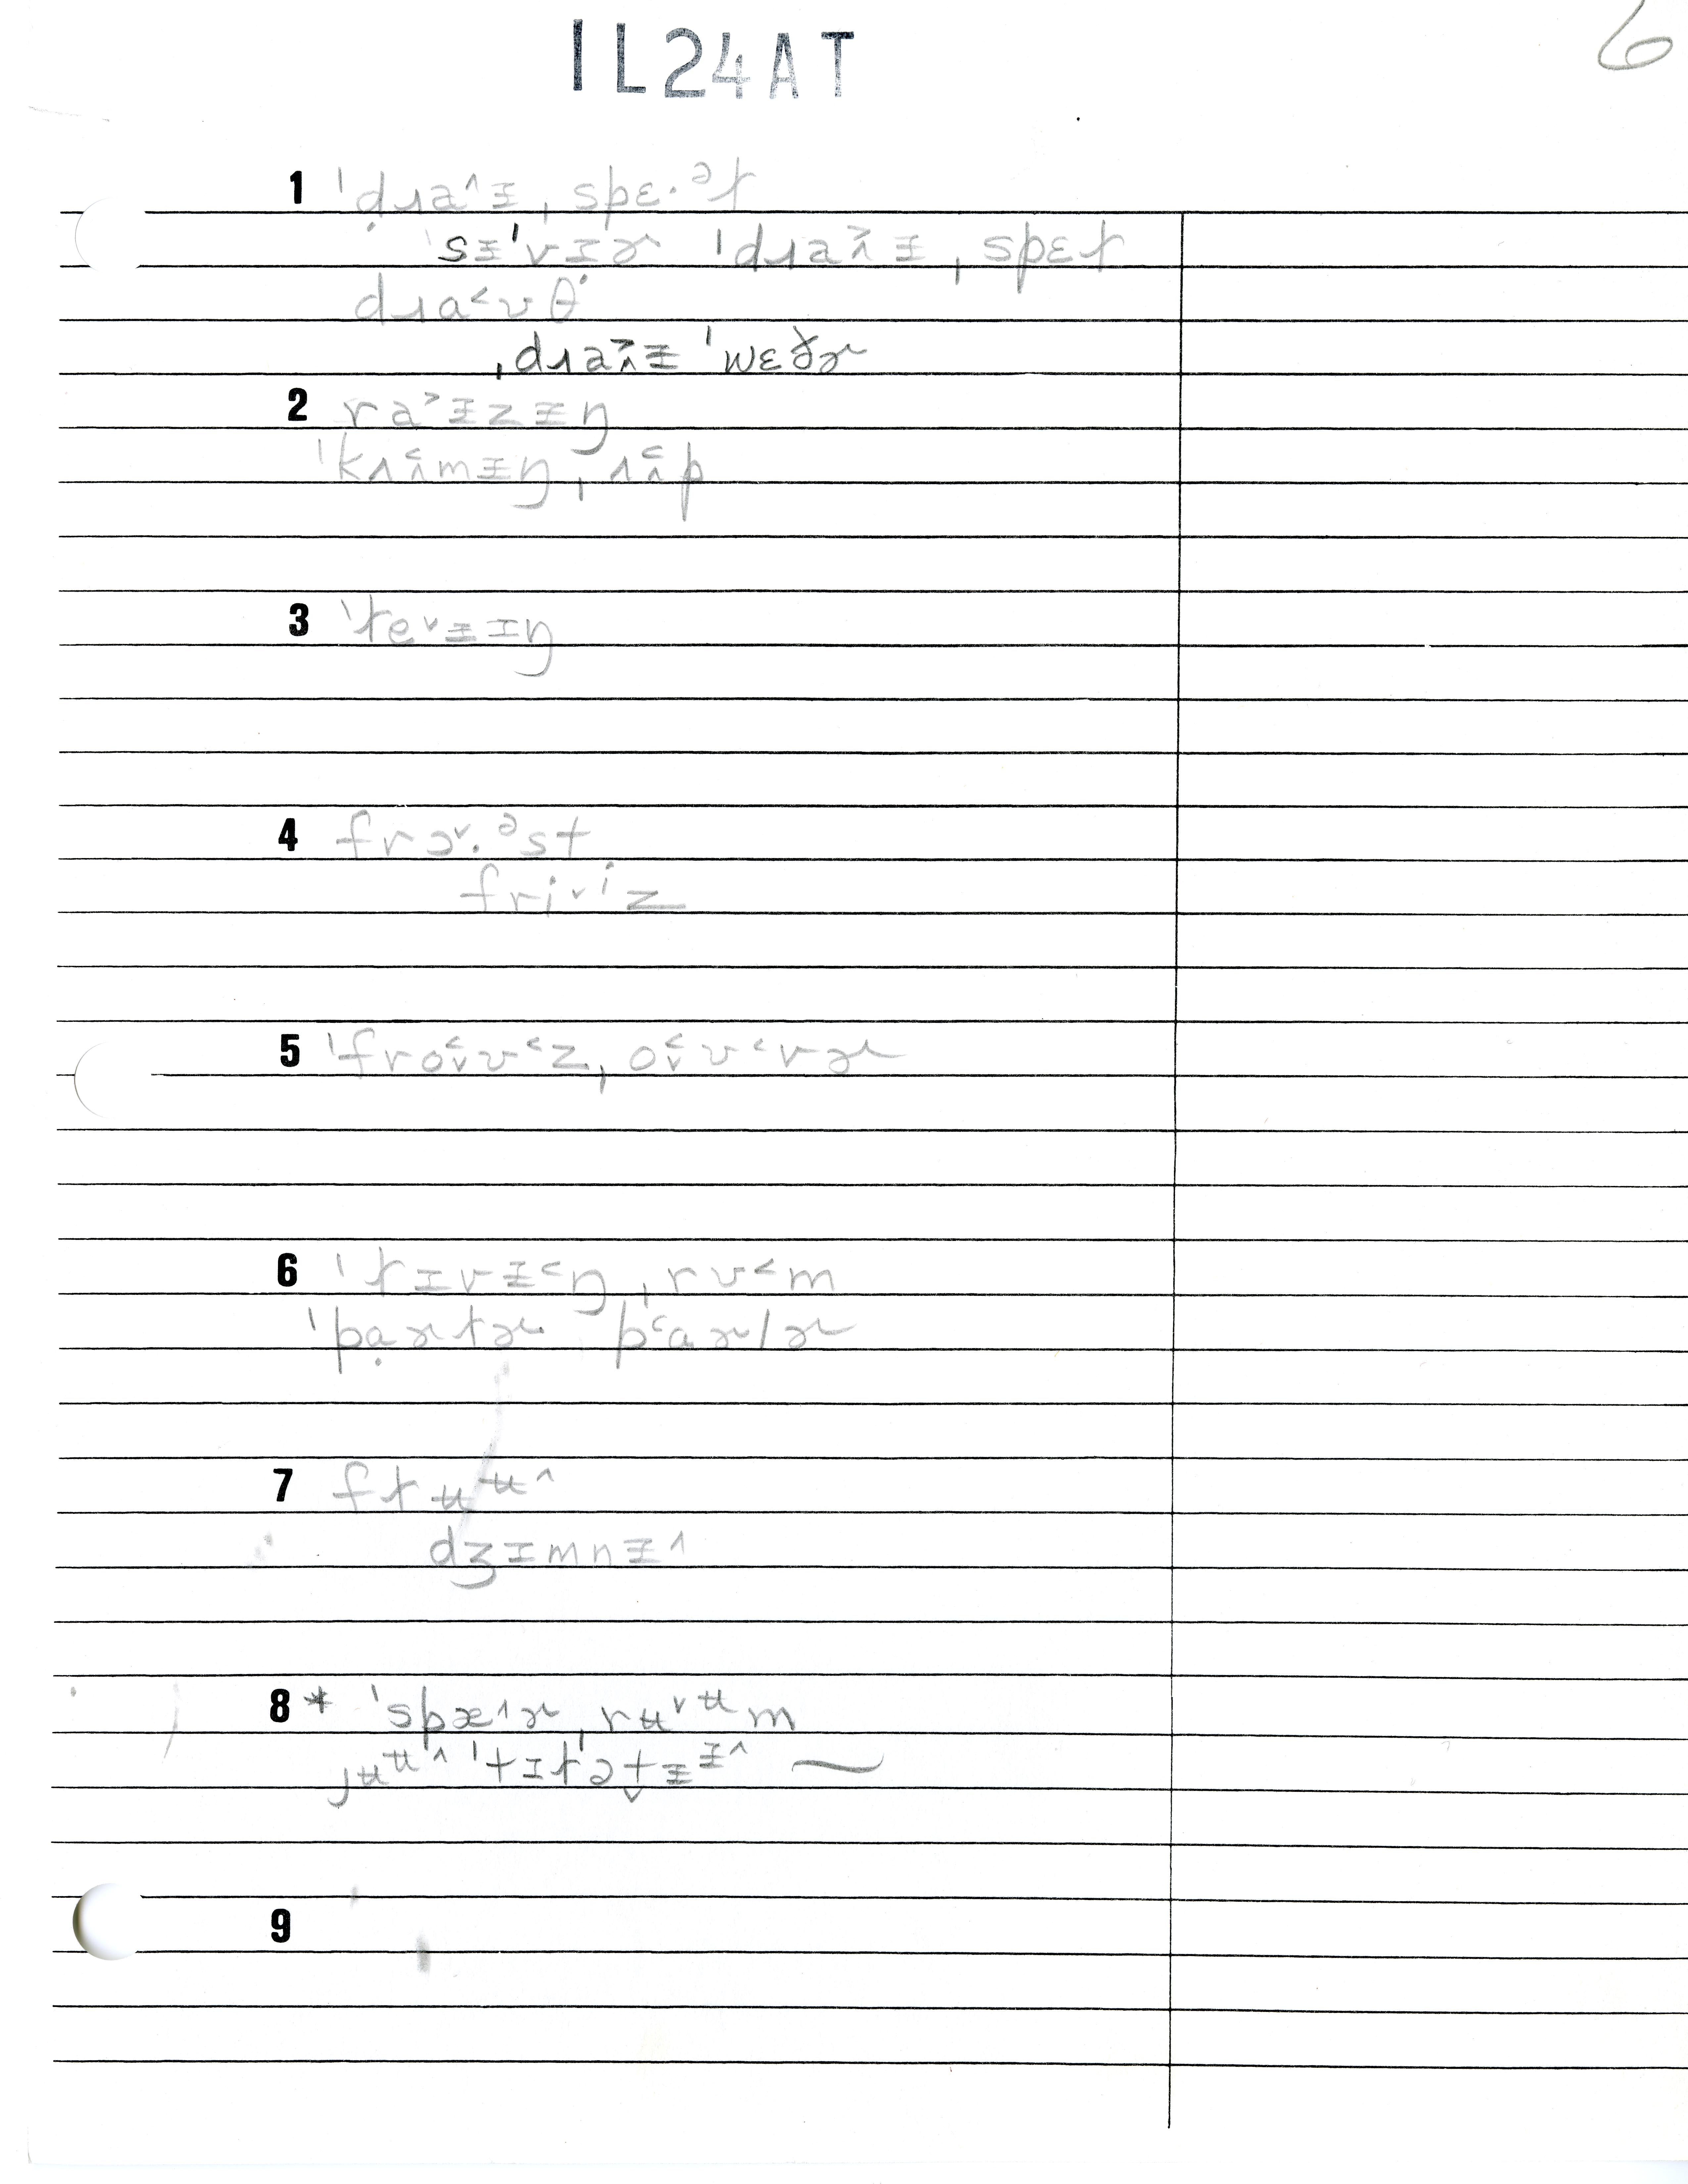 IL24AT
6
1 ˈdɹa^ɪ̵ˌspɛ·ᵊɫ
ˈsɪˈvɪɚ ˈdɹa^˃ɪ̵ˌspɛɫ
dɹa˂ʊθ
ˌdɹa^˃ɪ̵ ˈwɛðɚ
2 ra˃ɪ̵zɪ̵ŋ
ˈkʌ^˂mɪ̵ŋˌʌ^˂p
3 ˈɫeᵛɪ̵ɪŋ
4 frɔᵛ·ᵊst
friᵛⁱz
5 ˈfroᵛ˂ʊ˂zˌoᵛ˂ʊ˂vɚ
6 ˈɫɪvɪ̵˂ŋˌrʊ˂m
ˈpạɚtɚ pᶜaɚlɚ
7 fɫʉᶶ^
dʒɪmnɪ̵^
8 * ˈspæ^ɚˌrʉᵛᶶm
jʉᶶ^ ˈtɪɫəˌtɪ̵ᶧ^ ~
9